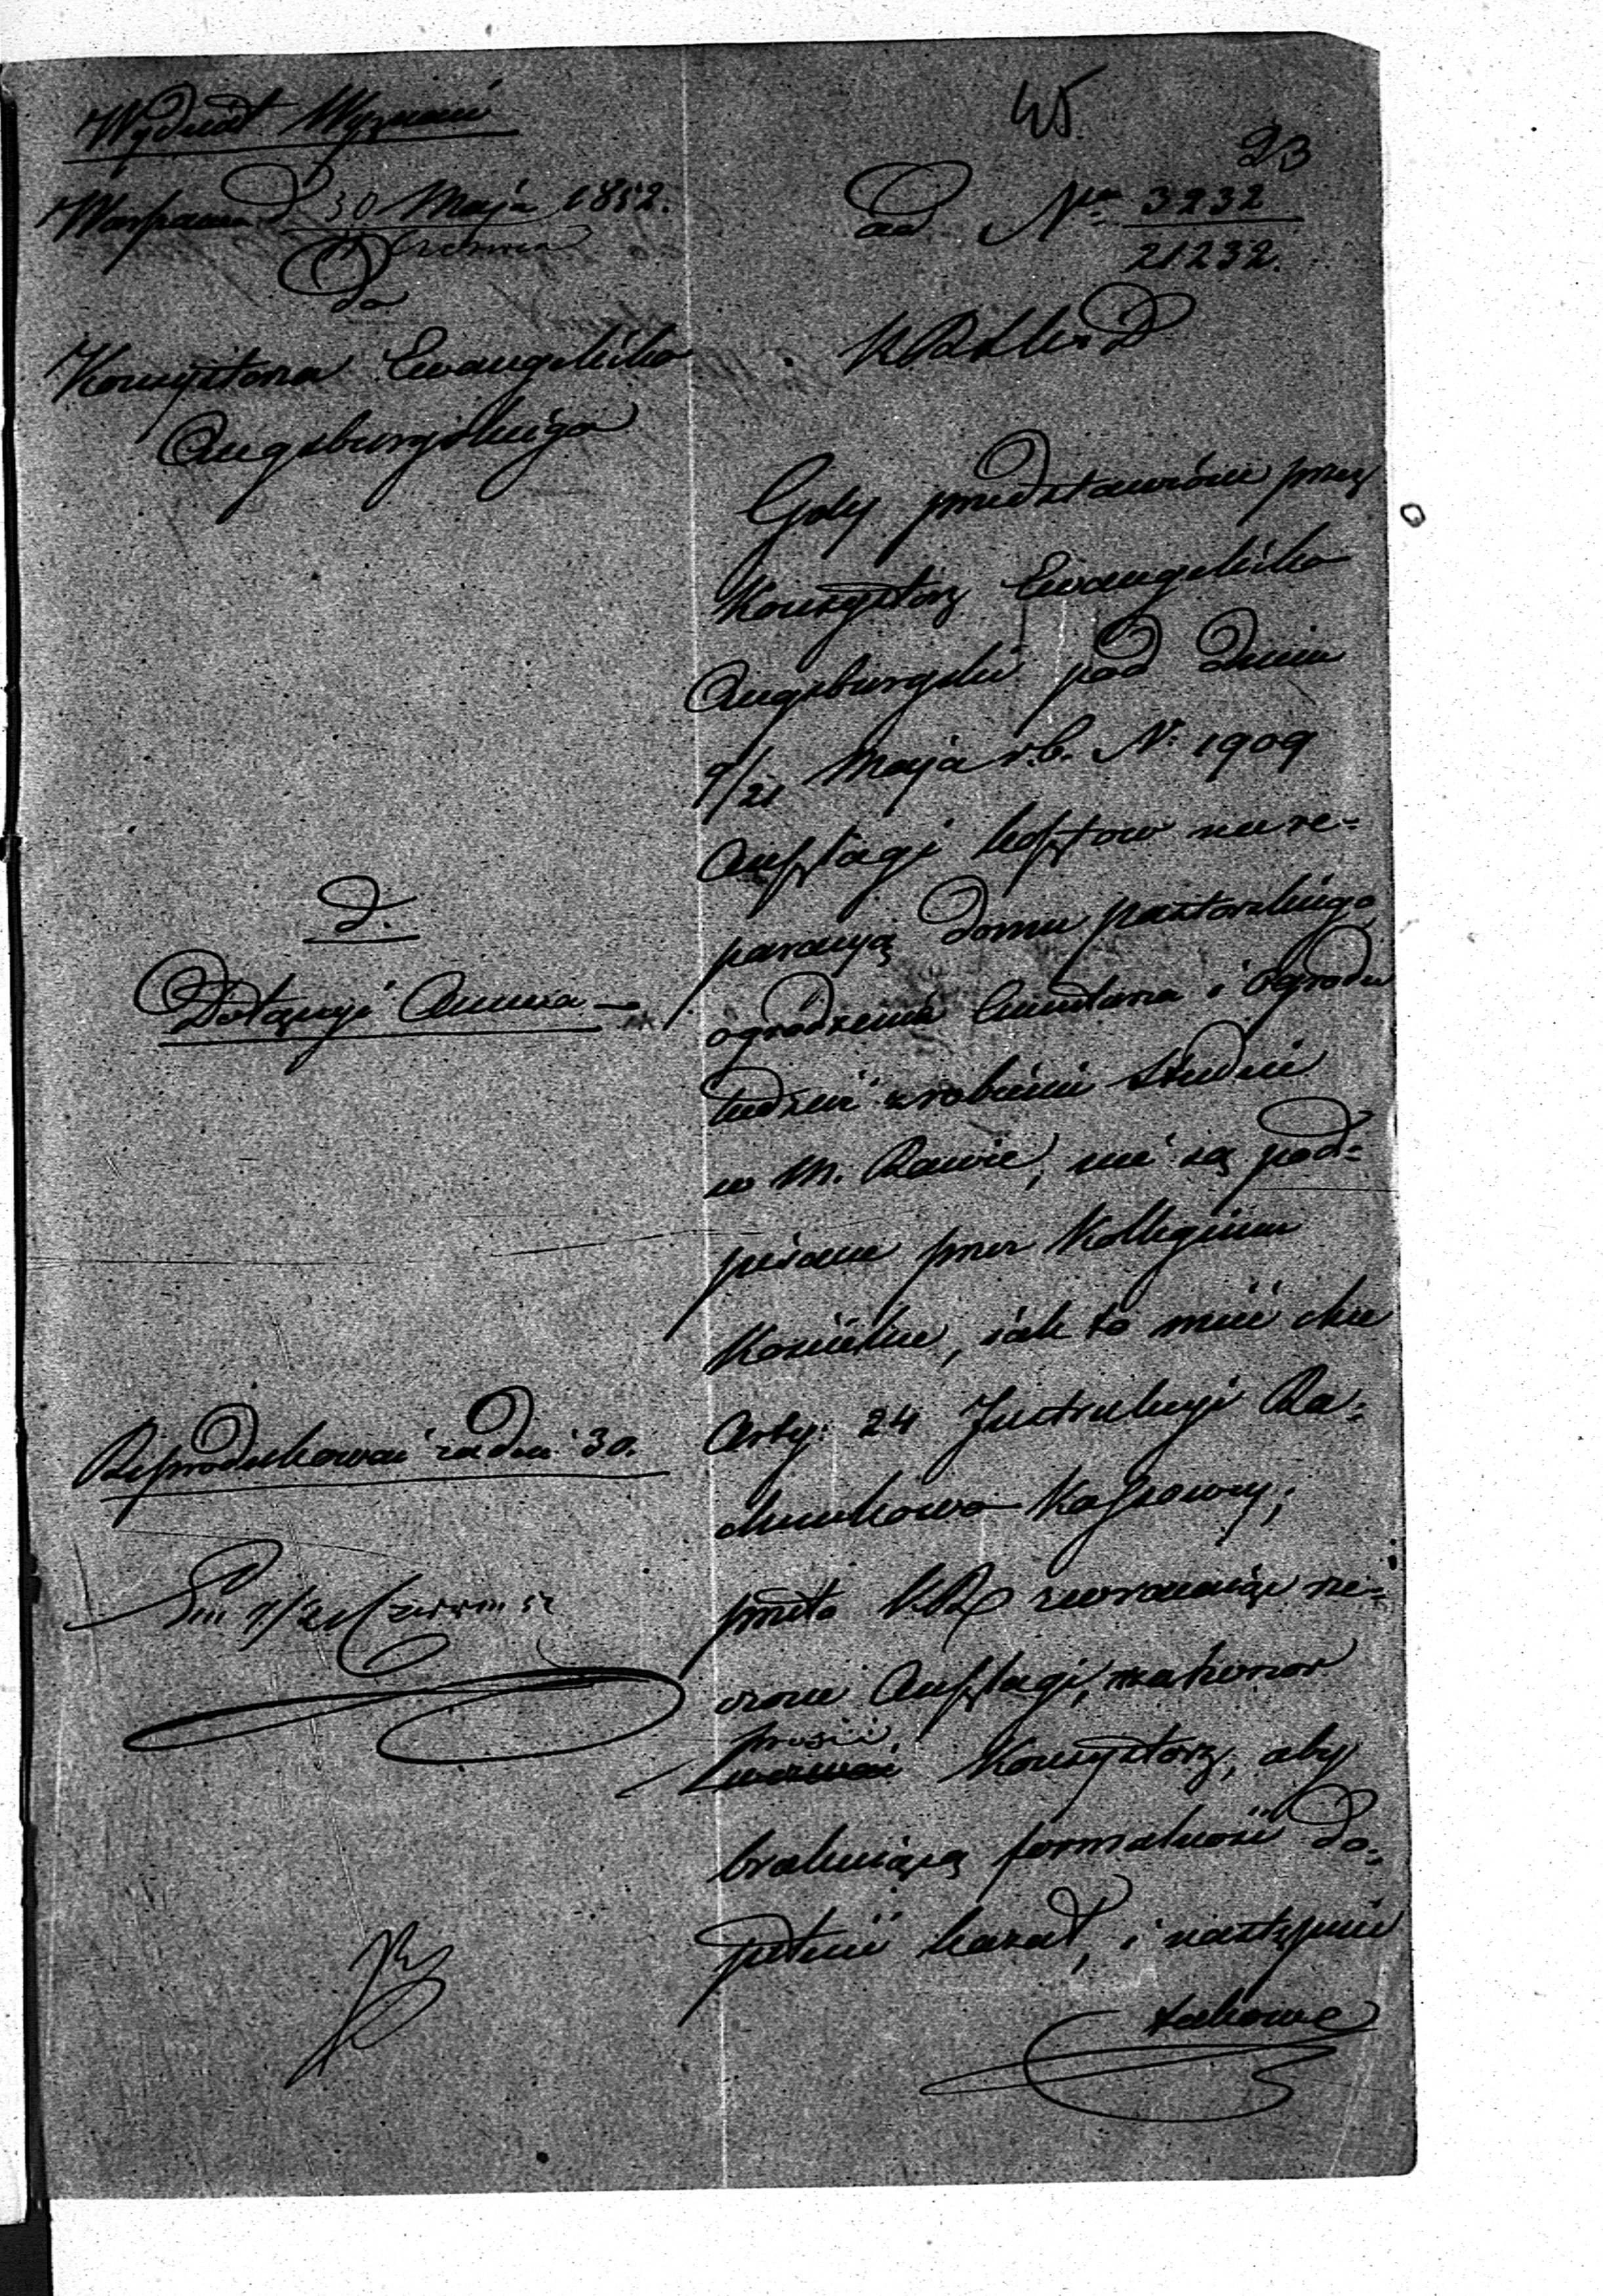 Wydział Wyznań
45
23
Warszawa d. 30 Maja 1852.
Czerwca
ad Nr 3232
21232.
Do
Konsystorza Ewangelicko
Augsburgskiego
Gdy przedstawione przez
Konsystorz Ewangelicko
Augsburgski pod dniem
9/21 Maja r.b. Nr 1909
Anszlagi kosztow na re-
paracyą domu pastorskiego
ogrodzenia Cmentarza i ogrodu
tudzież zrobienie studni
w M. Rawie, nie są pod-
pisane przez Kollegium
Kościelne, jak to mieć chce
Arty: 24 Instrukcyi Ra-
chunkowo Kassowey;
przeto KR zwracaiąc rze-
czone Anszlagi, ma honor
prosić
wezwać Konsystorz, aby
brakuiącą formalność do-
pełnić kazał, i następnie
takowe
d.
Dołączyć Annexa
Reprodukować za dni 30.
9/21 Czerwca 52